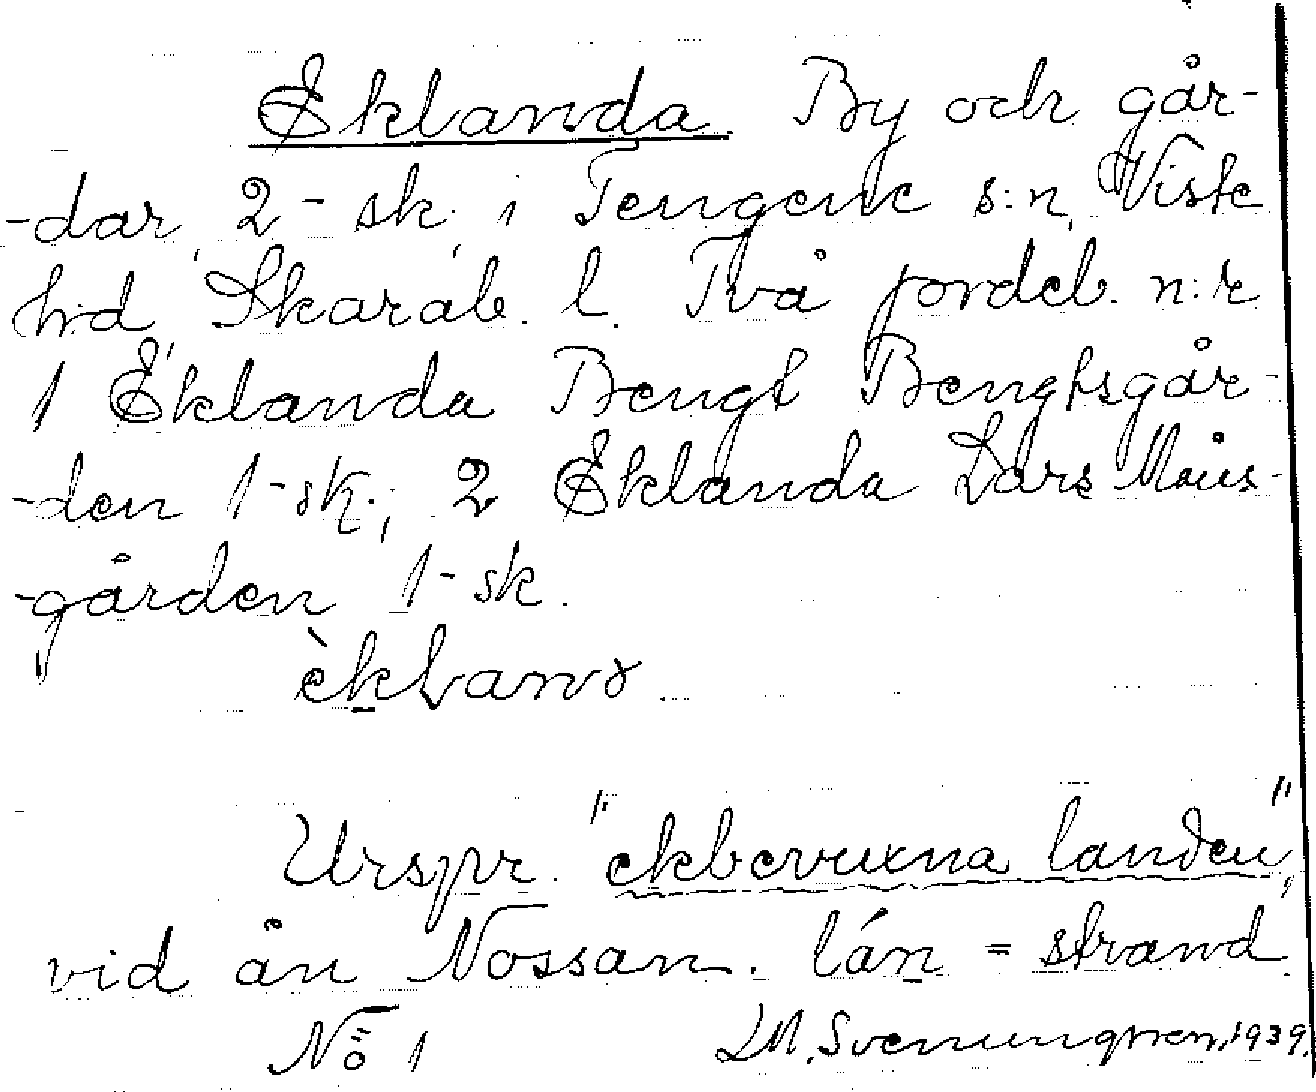 Eklanda. By och går-
-dar, 2-sk, i Tengene s:n, Viste
hd, Skarab. l. Två jordeb. n:r
1 Eklanda Bengt Bengtsgår-
-den 1-sk.; 2 Eklanda Lars Måns-
-gården 1-sk.
Urspr. "ekbevuxna landen",
vid ån Nossan. lán = strand
No 1 1939.